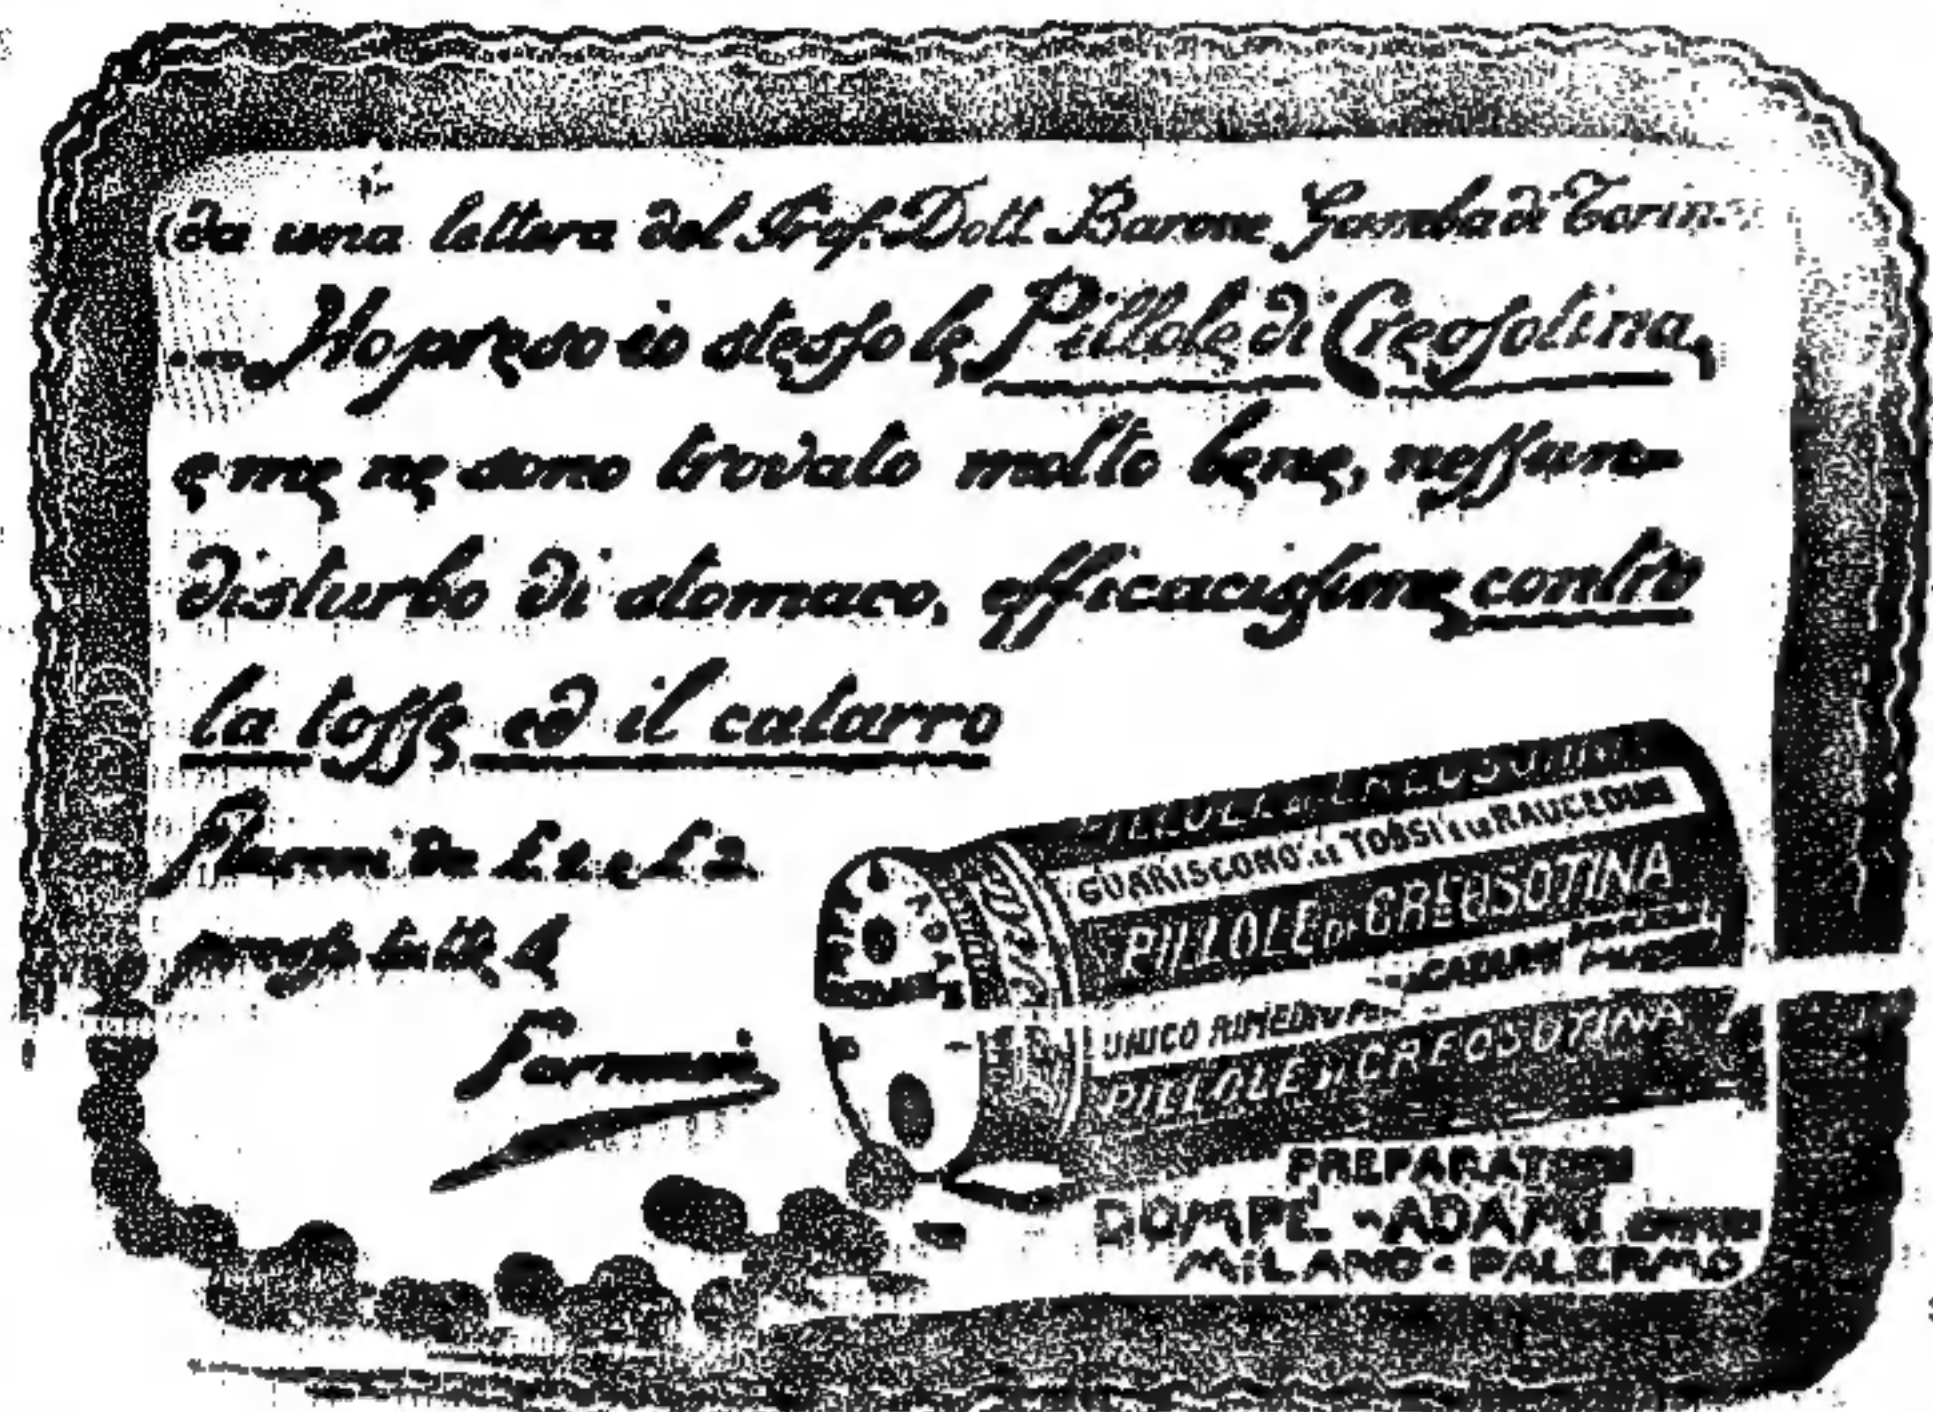 (da una lettera del Prof. Dott. Barone Gamba di Torino
.... Ho preso io stesso le Pillole di Creosotina,
e me ne sono trovato molto bene, nessun
disturbo di stomaco, efficacissime contro
la tosse ed il catarro
Flaconi da L. 1 e L. 2
presso tutte le
Farmacie
PILLOLE DI CREOSOTINA
GUARISCONO LE TOSSI E LE RAUCEDINI
PILLOLE DI CREOSOTINA
CATARRI
UNICO RIMEDIO PER
PILLOLE DI CREOSOTINA
PREPARATORI
DOMPÉ - ADAMI
MILANO - PALERMO